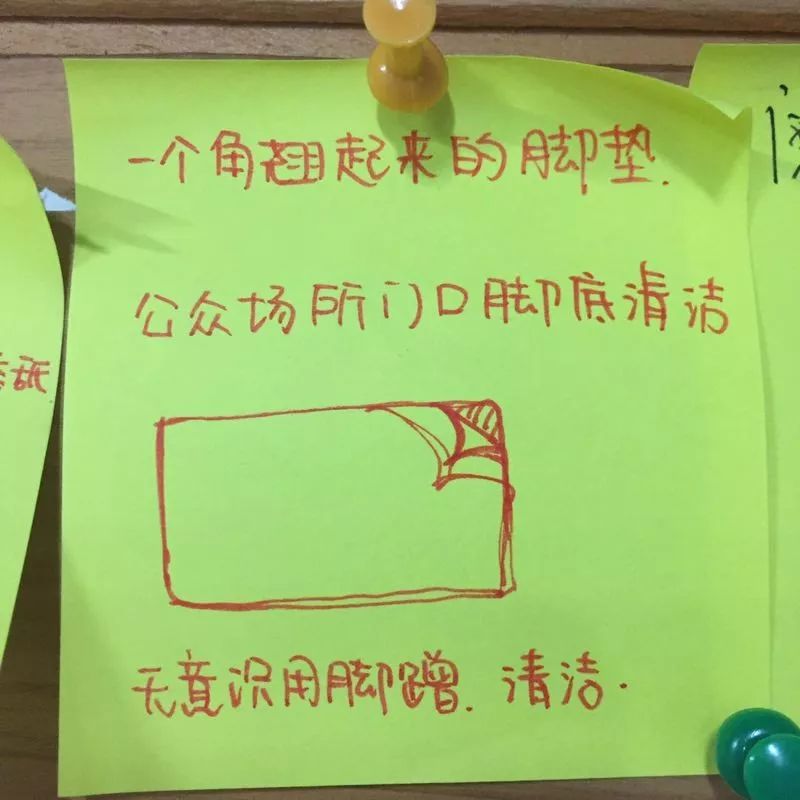 一个角翘起来的脚垫.
公众场所门口脚底清洁
无意识用脚蹭.清洁.